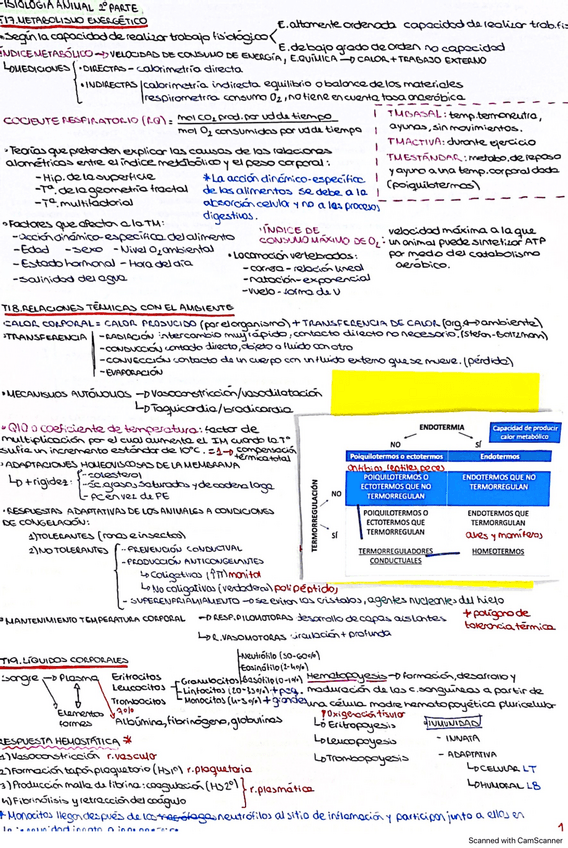 FISIOLOGÍA ANIMAL 2º PARTE
T17. METABOLISMO ENERGÉTICO
E. altamente ordenada capacidad de realizar trab. fis
• Según la capacidad de realizar trabajo fisiológico
E. de bajo grado de orden no capacidad
ÍNDICE METABÓLICO → VELOCIDAD DE CONSUMO DE ENERGÍA, E. QUÍMICA → CALOR + TRABAJO EXTERNO
↳ MEDICIONES • DIRECTAS - calorimetría directa
• INDIRECTAS calorimetría indirecta equilibrio o balance de los materiales
respirometría consumo O2, no tiene en cuenta tasa anaeróbica
COCIENTE RESPIRATORIO (RQ) = mol CO2 prod. por ud de tiempo
mol O2 consumidos por ud de tiempo
TM BASAL: temp. termoneutra,
ayunas, sin movimientos.
TM ACTIVA: durante ejercicio
TM ESTÁNDAR: metabo. de reposo
y ayuno a una temp. corporal dada
(poiquilotermos)
• Teorías que pretenden explicar las causas de las relaciones
alométricas entre el índice metabólico y el peso corporal:
- Hip. de la superficie
- Tª. de la geometría fractal
- Tª. multifactorial
* La acción dinámico-específica
de los alimentos se debe a la
absorción celular y no a los procesos
digestivos.
• Factores que afectan a la TM:
- acción dinámico-específica del alimento
- Edad - Sexo - Nivel O2 ambiental
- Estado hormonal - Hora del día
- Salinidad del agua
• ÍNDICE DE
CONSUMO MÁXIMO DE O2:
velocidad máxima a la que
un animal puede sintetizar ATP
por medio del catabolismo
aeróbico.
• Locomoción vertebrados:
- carrera - relación lineal
- natación - exponencial
- vuelo - forma de U
T18. RELACIONES TÉRMICAS CON EL AMBIENTE
• CALOR CORPORAL = CALOR PRODUCIDO (por el organismo) + TRANSFERENCIA DE CALOR (org. ↔ ambiente)
• TRANSFERENCIA - RADIACIÓN intercambio muy rápido, contacto directo no necesario. (Stefan-Boltzman)
- CONDUCCIÓN contacto directo, objeto o fluido con otro
- CONVECCIÓN contacto de un cuerpo con un fluido externo que se mueve. (pérdida)
- EVAPORACIÓN
• MECANISMOS AUTÓNOMOS → Vasoconstricción/vasodilatación
↳ Taquicardia/bradicardia
• Q10 o coeficiente de temperatura: factor de
multiplicación por el cual aumenta el IM cuando la Tª
sufre un incremento estándar de 10ºC. = 1 → compensación
térmica total
• ADAPTACIONES HOMEOVISCOSAS DE LA MEMBRANA
↳ + rigidez: - colesterol
- ac. grasos saturados y de cadena larga
- PC en vez de PE
ENDOTERMIA
Capacidad de producir
calor metabólico
NO SÍ
Poiquilotermos o ectotermos Endotermos
Anfibios, reptiles, peces
TERMORREGULACIÓN
NO
POIQUILOTERMOS O
ECTOTERMOS QUE NO
TERMORREGULAN
ENDOTERMOS QUE NO
TERMORREGULAN
SÍ
POIQUILOTERMOS O
ECTOTERMOS QUE
TERMORREGULAN
ENDOTERMOS QUE
TERMORREGULAN
aves y mamíferos
TERMORREGULADORES
CONDUCTUALES
HOMEOTERMOS
• RESPUESTAS ADAPTATIVAS DE LOS ANIMALES A CONDICIONES
DE CONGELACIÓN:
1) TOLERANTES (ranas e insectos)
2) NO TOLERANTES - PREVENCIÓN CONDUCTUAL
- PRODUCCIÓN ANTICONGELANTES
↳ Coligativos (↑π) manitol
↳ No coligativos (verdaderos) polipéptidos
- SUPERENFRIAMIENTO → se evitan los cristales, agentes nucleantes del hielo
* polígono de
tolerancia térmica
• MANTENIMIENTO TEMPERATURA CORPORAL → RESP. PILOMOTORAS desarrollo de capas aislantes
↳ R. VASOMOTORAS: circulación + profunda
T19. LÍQUIDOS CORPORALES
Sangre → Plasma
Elementos
formes
Eritrocitos
Leucocitos
Trombocitos
Albúmina, fibrinógeno, globulinas
Granulocitos
Neutrófilo (50-60%)
Eosinófilo (1-4%)
Basófilo (0-1%)
Linfocitos + peq.
Monocitos + grandes
Hematopoyesis → formación, desarrollo y
maduración de las c. sanguíneas a partir de
una célula madre hematopoyética pluricelular
Oxigenación tisular
↳ Eritropoyesis
↳ Leucopoyesis
↳ Trombopoyesis
INMUNIDAD
- INNATA
- ADAPTATIVA
↳ CELULAR LT
↳ HUMORAL LB
RESPUESTA HEMOSTÁTICA *
1) Vasoconstricción r. vascular
2) Formación tapón plaquetario (HS1º) r. plaquetaria
3) Producción malla de fibrina: coagulación (HS2º)
r. plasmática
4) Fibrinólisis y retracción del coágulo
* Monocitos llegan después de los neutrófilos al sitio de inflamación y participan junto a ellos en
1
Scanned with CamScanner